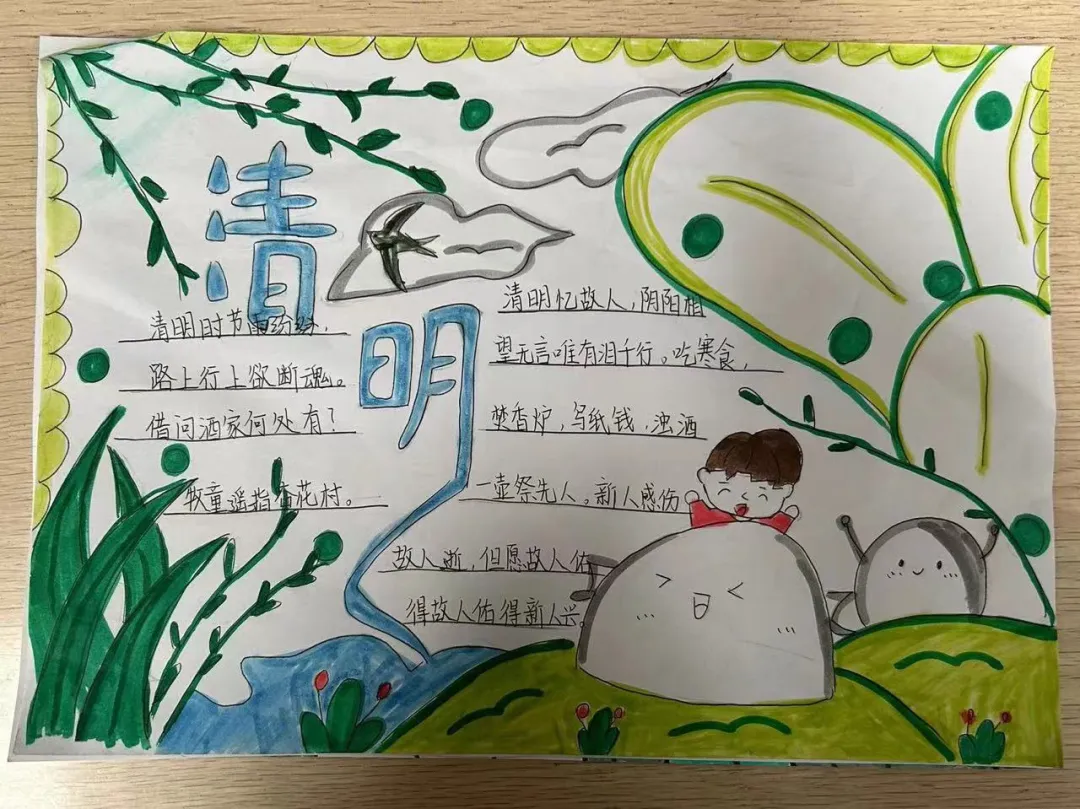 清明
清明时节雨纷纷，
路上行上欲断魂。
借问酒家何处有？
牧童遥指杏花村。
清明忆故人，阴阳相
望无言唯有泪千行。吃寒食，
焚香炉，写纸钱，浊酒
一壶祭先人。新人感伤
故人逝，但愿故人佑
得故人佑得新人兴。